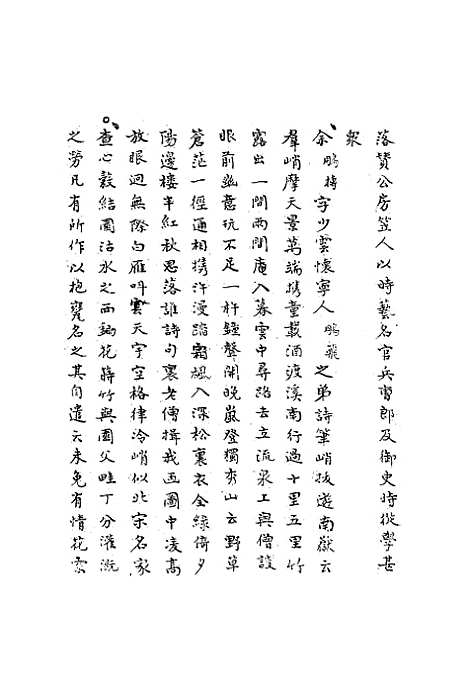 落贊公房笠人以時藝名官兵曹郎及御史時從學甚
衆
余鵬摶字少雲懷寧人鵬飛之弟詩筆峭拔遊南嶽云
羣峭摩天景萬端携童載酒渡溪南行過十里五里竹
露出一間兩間庵入暮雲中尋路去立流泉上與僧談
眼前幽意玩不足一杵鐘聲開晚嵐登獨秀山云野草
蒼茫一徑通相携汗漫踏霜楓入深松裏衣全綠倚夕
陽邊樓半紅秋思落誰詩句裏老僧揖我画圖中凌高
放眼迥無際白雁叫雲天宇空格律冷峭似北宋名家
查心穀結園沽水之西鋤花蒔竹與園父畦丁分灌溉
之勞凡有所作以抱甕名之其自遣云未免有情花索